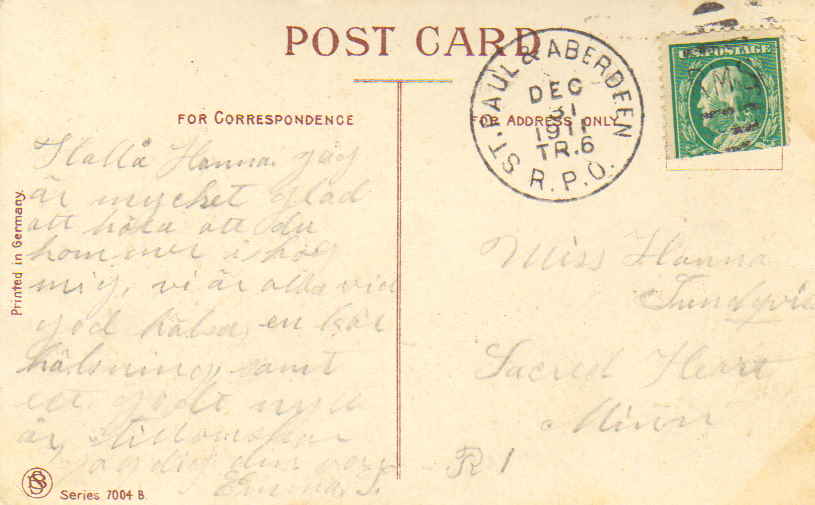 POST CARD
FOR CORRESPONDENCE
FOR ADDRESS ONLY
ST. PAUL & ABERDEEN
DEC
31
1911
TR.6
R.P.O.
U.S. POSTAGE
RMS
Hallå Hanna. jag
är mycket glad
att höra att du
kommer ihåg
mig, vi är alla vid
god hälsa, en kär
hälsning samt
ett godt nytt
år
Emma. S.
Miss Hanna
Sacred Heart
Minn
R 1
Printed in Germany.
Series 7004 B.